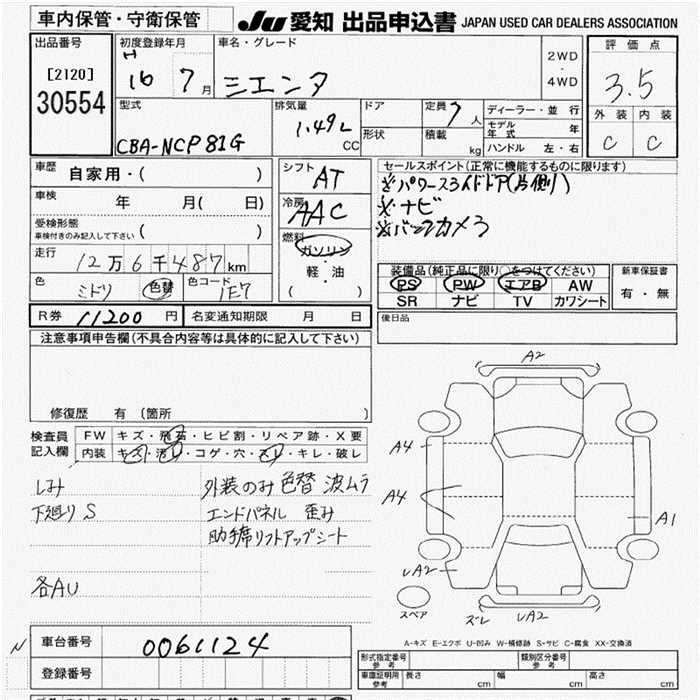 車内保管・守衛保管
JU 愛知 出品申込書 JAPAN USED CAR DEALERS ASSOCIATION
出品番号
[2120]
30554
初度登録年月
H
16 7月
車名・グレード
シエンタ
2WD
・
4WD
評価点
3.5
外装 内装
C C
型式
CBA-NCP81G
排気量
1.49L
CC
ドア
形状
定員 7人
積載 kg
ディーラー・並行
モデル年式 年
ハンドル 左・右
車歴 自家用・( )
車検 年 月( 日)
受検形態
車検付きのみ記入して下さい ( )
走行
12万6千487km
色 ミドリ 色替 色コード 1E7
シフト AT
冷房 AAC
燃料
ガソリン
・
軽・油
( )
セールスポイント(正常に機能するものに限ります)
※パワースライドドア(片側)
※ナビ
※バックカメラ
装備品(純正品に限り○をつけてください)
PS PW エアB AW
SR ナビ TV カワシート
新車保証書
有・無
R券 11200円 名変通知期限 月 日
後日品
注意事項申告欄(不具合内容等は具体的に記入して下さい)
修復歴 有 〔箇所 〕
検査員
記入欄
FW キズ・飛石・ヒビ割・リペア跡・X要
内装 キズ・汚レ・コゲ・穴・スレ・キレ・破レ
しみ
下廻りS
各AU
外装のみ色替 波ムラ
エンドパネル 歪み
助手席リフトアップシート
A2
A4
A4
A1
LA2
スペア
ズレ
LA2
A-キズ E-エクボ U-凹み W-補修跡 S-サビ C-腐食 XX-交換済
N
車台番号 0061124
登録番号
形式指定番号
参考
類別区分番号
参考
車庫証明用
参考
長さ cm 幅 cm 高さ cm